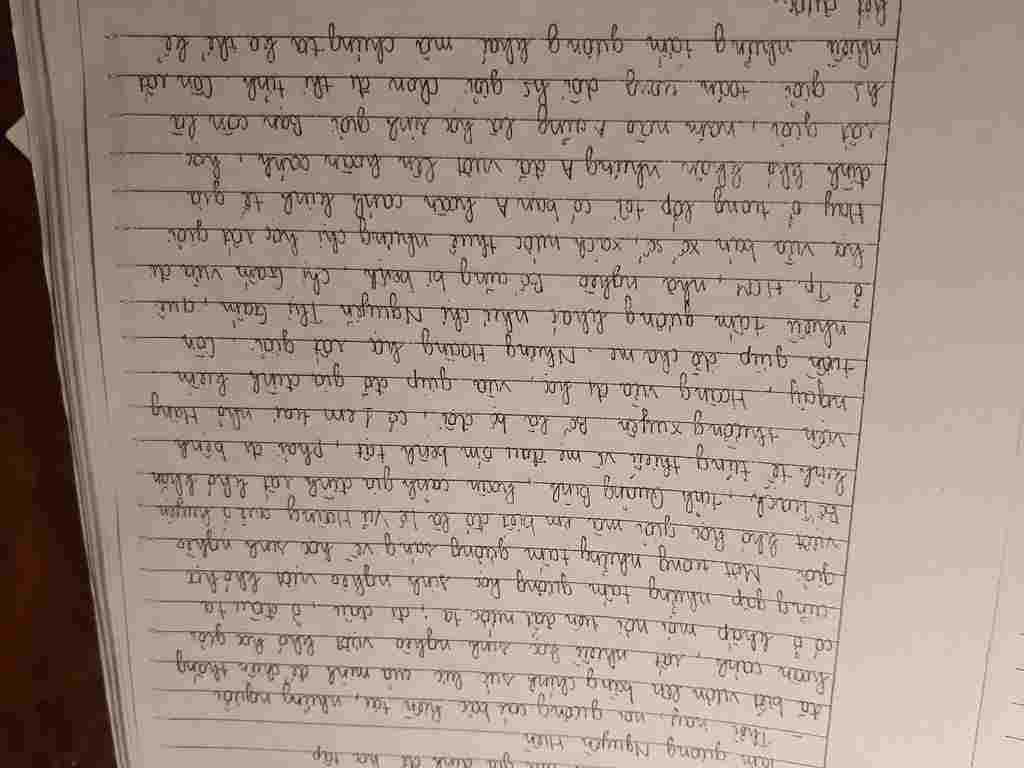 gia đình để học tập
tấm gương Nguyễn Hiền
- Thời nay, noi gương các bậc hiền tài, những người
đã biết vươn lên bằng chính sức lực của mình để chiến thắng
hoàn cảnh, rất nhiều học sinh nghèo vượt khó học giỏi
có ở khắp mọi nơi trên đất nước ta, đi đâu, ở đâu ta
cũng gặp những tấm gương học sinh nghèo vượt khó học
giỏi. Một trong những tấm gương sáng về học sinh nghèo
vượt khó học giỏi mà em biết đó là Lê Vũ Hoàng quê ở huyện
Bố Trạch, tỉnh Quảng Bình, hoàn cảnh gia đình rất khó khăn
kinh tế túng thiếu vì mẹ đau ốm bệnh tật, phải đi bệnh
viện thường xuyên Bố là bộ đội, có 1 em trai nhỏ Hàng
ngày, Hoàng vừa đi học, vừa giúp đỡ gia đình kiếm
tiền giúp đỡ cha mẹ. Nhưng Hoàng học rất giỏi. Còn
nhiều tấm gương khác như chị Nguyễn Thị Gấm, quê
ở Tp. HCM, nhà nghèo Bố cũng bị bệnh, chị Gấm vừa đi
học vừa bán xổ số, xách nước thuê nhưng chị học rất giỏi
Hay ở trong lớp tôi có bạn A hoàn cảnh kinh tế gia
đình khó khăn nhưng A đã vượt lên hoàn cảnh, học
rất giỏi, năm nào A cũng là học sinh giỏi Bạn còn là
hs giỏi toán trong đội hs giỏi chọn đi thi tỉnh Còn rất
nhiều những tấm gương khác mà chúng ta ko thể kể
hết được.